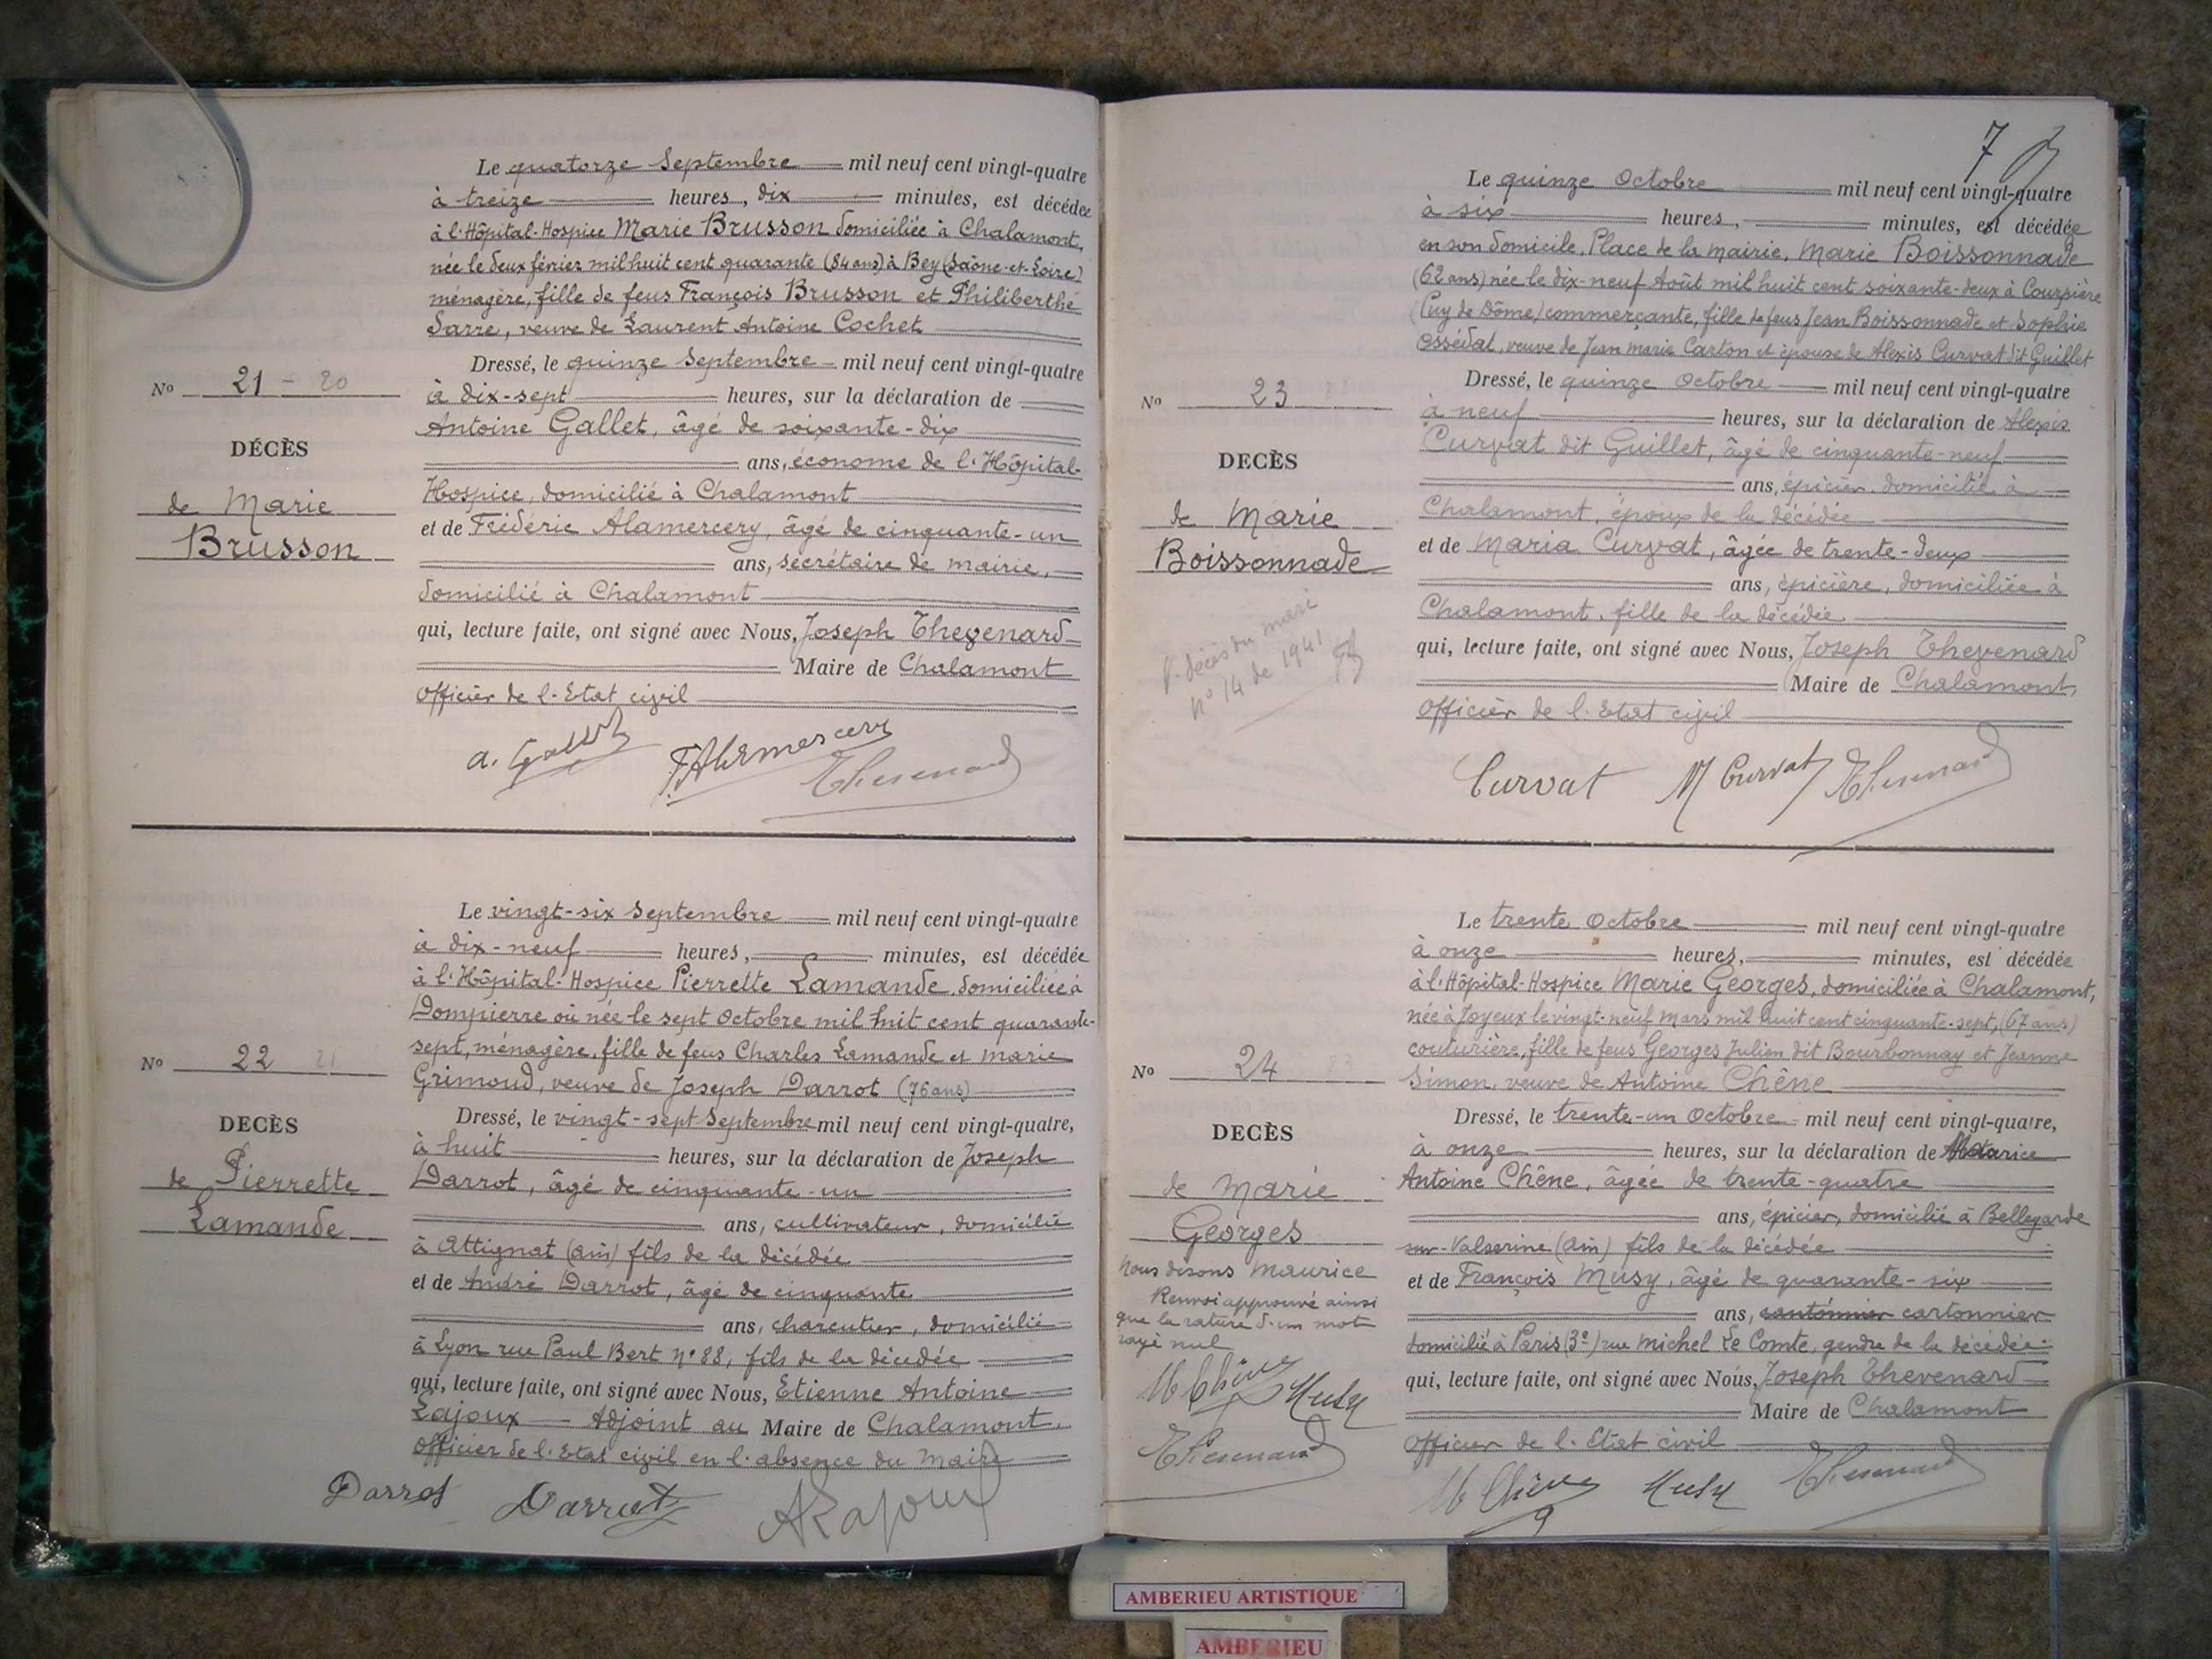 Le quatorze Septembre mil neuf cent vingt-quatre
à treize heures, dix minutes, est décédée
à l'Hôpital-Hospice Marie Brusson domiciliée à Chalamont,
née le deux février mil huit cent quarante (84 ans) à Bey (Saône-et-Loire)
ménagère, fille de feus François Brusson et Philiberthe
Sarre, veuve de Laurent Antoine Cochet
Dressé, le quinze Septembre mil neuf cent vingt-quatre
à dix-sept heures, sur la déclaration de
Antoine Gallet, âgé de soixante-dix
ans, économe de l'Hôpital-
Hospice, domicilié à Chalamont
et de Frédéric Alamercery, âgé de cinquante-un
ans, secrétaire de mairie,
domicilié à Chalamont
qui, lecture faite, ont signé avec Nous, Joseph Thevenard
Maire de Chalamont
officier de l'Etat civil
Nº 21 - 20
DÉCÈS
de Marie
Brusson
a. Gallet FAlamercery Thevenard
Le vingt-six Septembre mil neuf cent vingt-quatre
à dix-neuf heures, minutes, est décédée
à l'Hôpital-Hospice Pierrette Lamande, domiciliée à
Dompierre où née le sept Octobre mil huit cent quarante-
sept, ménagère, fille de feus Charles Lamande et Marie
Grimoud, veuve de Joseph Darrot (76 ans)
Dressé, le vingt-sept Septembre mil neuf cent vingt-quatre,
à huit heures, sur la déclaration de Joseph
Darrot, âgé de cinquante-un
ans, cultivateur, domicilié
à Attignat (Ain) fils de la décédée
et de André Darrot, âgé de cinquante
ans, charcutier, domicilié
à Lyon rue Paul Bert nº 88, fils de la décédée
qui, lecture faite, ont signé avec Nous, Etienne Antoine
Lajoux Adjoint au Maire de Chalamont.
officier de l'Etat civil en l'absence du Maire
Nº 22 21
DÉCÈS
de Pierrette
Lamande
Darrot Darrot ALajoux
7
Le quinze Octobre mil neuf cent vingt-quatre
à six heures, minutes, est décédée
en son domicile, Place de la mairie, Marie Boissonnade
(62 ans) née le dix-neuf Août mil huit cent soixante-deux à Courpière
(Puy de Dôme) commerçante, fille de feus Jean Boissonnade et Sophie
Ossédat, veuve de Jean Marie Carton et épouse de Alexis Curvat dit Guillet
Dressé, le quinze Octobre mil neuf cent vingt-quatre
à neuf heures, sur la déclaration de Alexis
Curvat dit Guillet, âgé de cinquante-neuf
ans, épicier, domicilié à
Chalamont, époux de la décédée
et de Maria Curvat, âgée de trente-deux
ans, épicière, domiciliée à
Chalamont, fille de la décédée
qui, lecture faite, ont signé avec Nous, Joseph Thevenard
Maire de Chalamont,
officier de l'Etat civil
Nº 23
DÉCÈS
de Marie
Boissonnade
V. décès du mari
nº 14 de 1941
Curvat M Curvat Thevenard
Le trente Octobre mil neuf cent vingt-quatre
à onze heures, minutes, est décédée
à l'Hôpital-Hospice Marie Georges, domiciliée à Chalamont,
née à Joyeux le vingt-neuf Mars mil huit cent cinquante-sept, (67 ans)
couturière, fille de feus Georges Julien dit Bourbonnay et Jeanne
Simon, veuve de Antoine Chêne
Dressé, le trente-un Octobre mil neuf cent vingt-quatre,
à onze heures, sur la déclaration de Maurice
Antoine Chêne, âgée de trente-quatre
ans, épicier, domicilié à Bellegarde
sur-Valserine (Ain) fils de la décédée
et de François Musy, âgé de quarante-six
ans, cantonnier cartonnier
domicilié à Paris (3e) rue Michel Le Comte, gendre de la décédée
qui, lecture faite, ont signé avec Nous, Joseph Thevenard
Maire de Chalamont
officier de l'Etat civil
Nº 24
DÉCÈS
de Marie
Georges
Nous disons Maurice
Renvoi approuvé ainsi
que la rature d'un mot
rayé nul
M Chêne Musy
Thevenard
M Chêne Musy Thevenard
AMBERIEU ARTISTIQUE
AMBERIEU